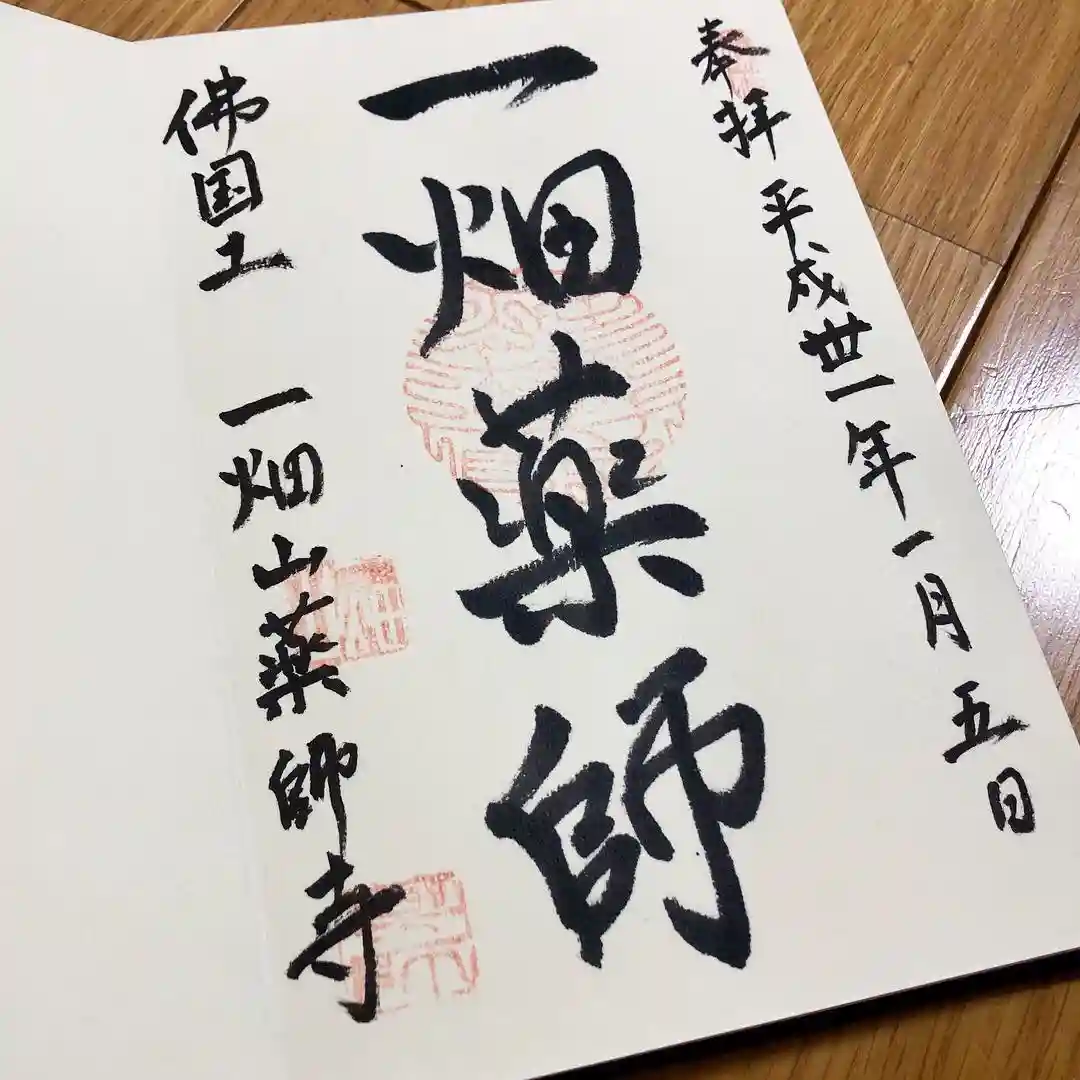 奉拝 平成丗一年一月五日
一畑薬師
佛国土 一畑山薬師寺